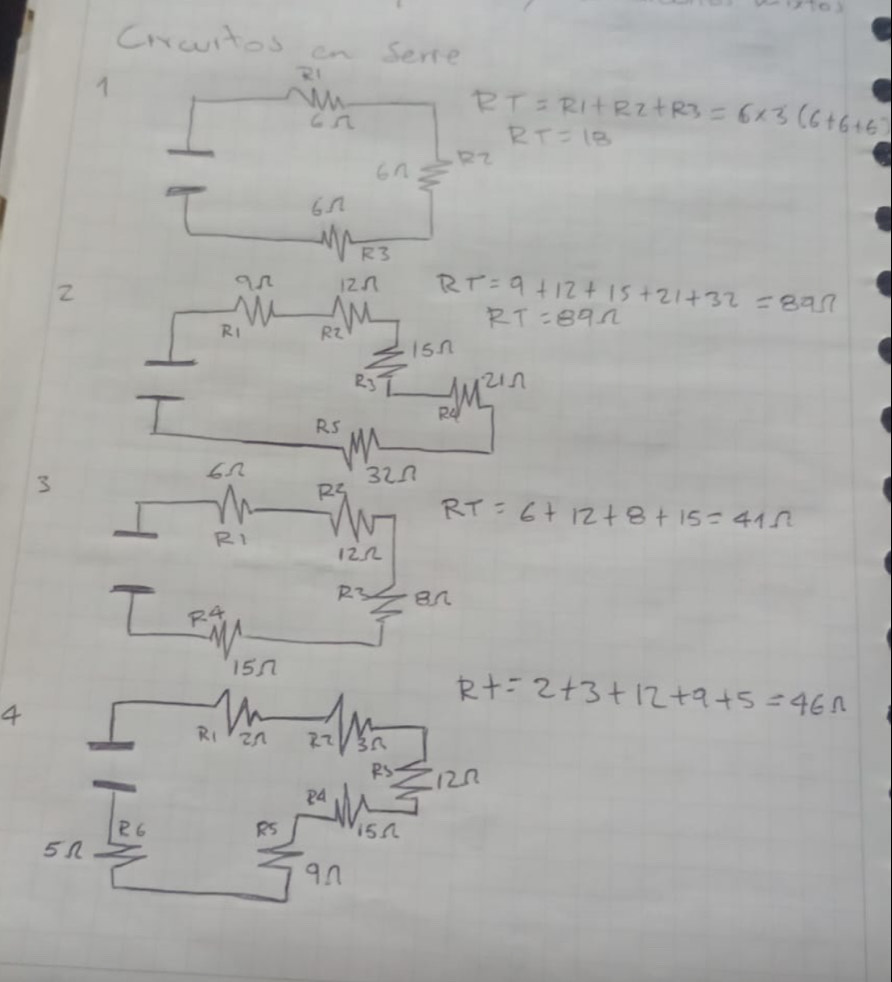 mixtos
Circuitos en Serie
1
R1
6Ω
RT = R1+R2+R3 = 6x3 (6+6+6
RT = 18
6Ω R2
6Ω
R3
2
9Ω 12Ω
R1 R2
RT = 9 + 12 + 15 + 21 + 32 = 89Ω
RT = 89Ω
15Ω
R3
21Ω
R4
R5
32Ω
3
6Ω
R2
R1
12Ω
RT = 6 + 12 + 8 + 15 = 41Ω
R3 8Ω
R4
15Ω
4
R1 2Ω R2 3Ω
Rt = 2+3+12+9+5 = 46Ω
R3 12Ω
R4
15Ω
R6
5Ω
R5
9Ω